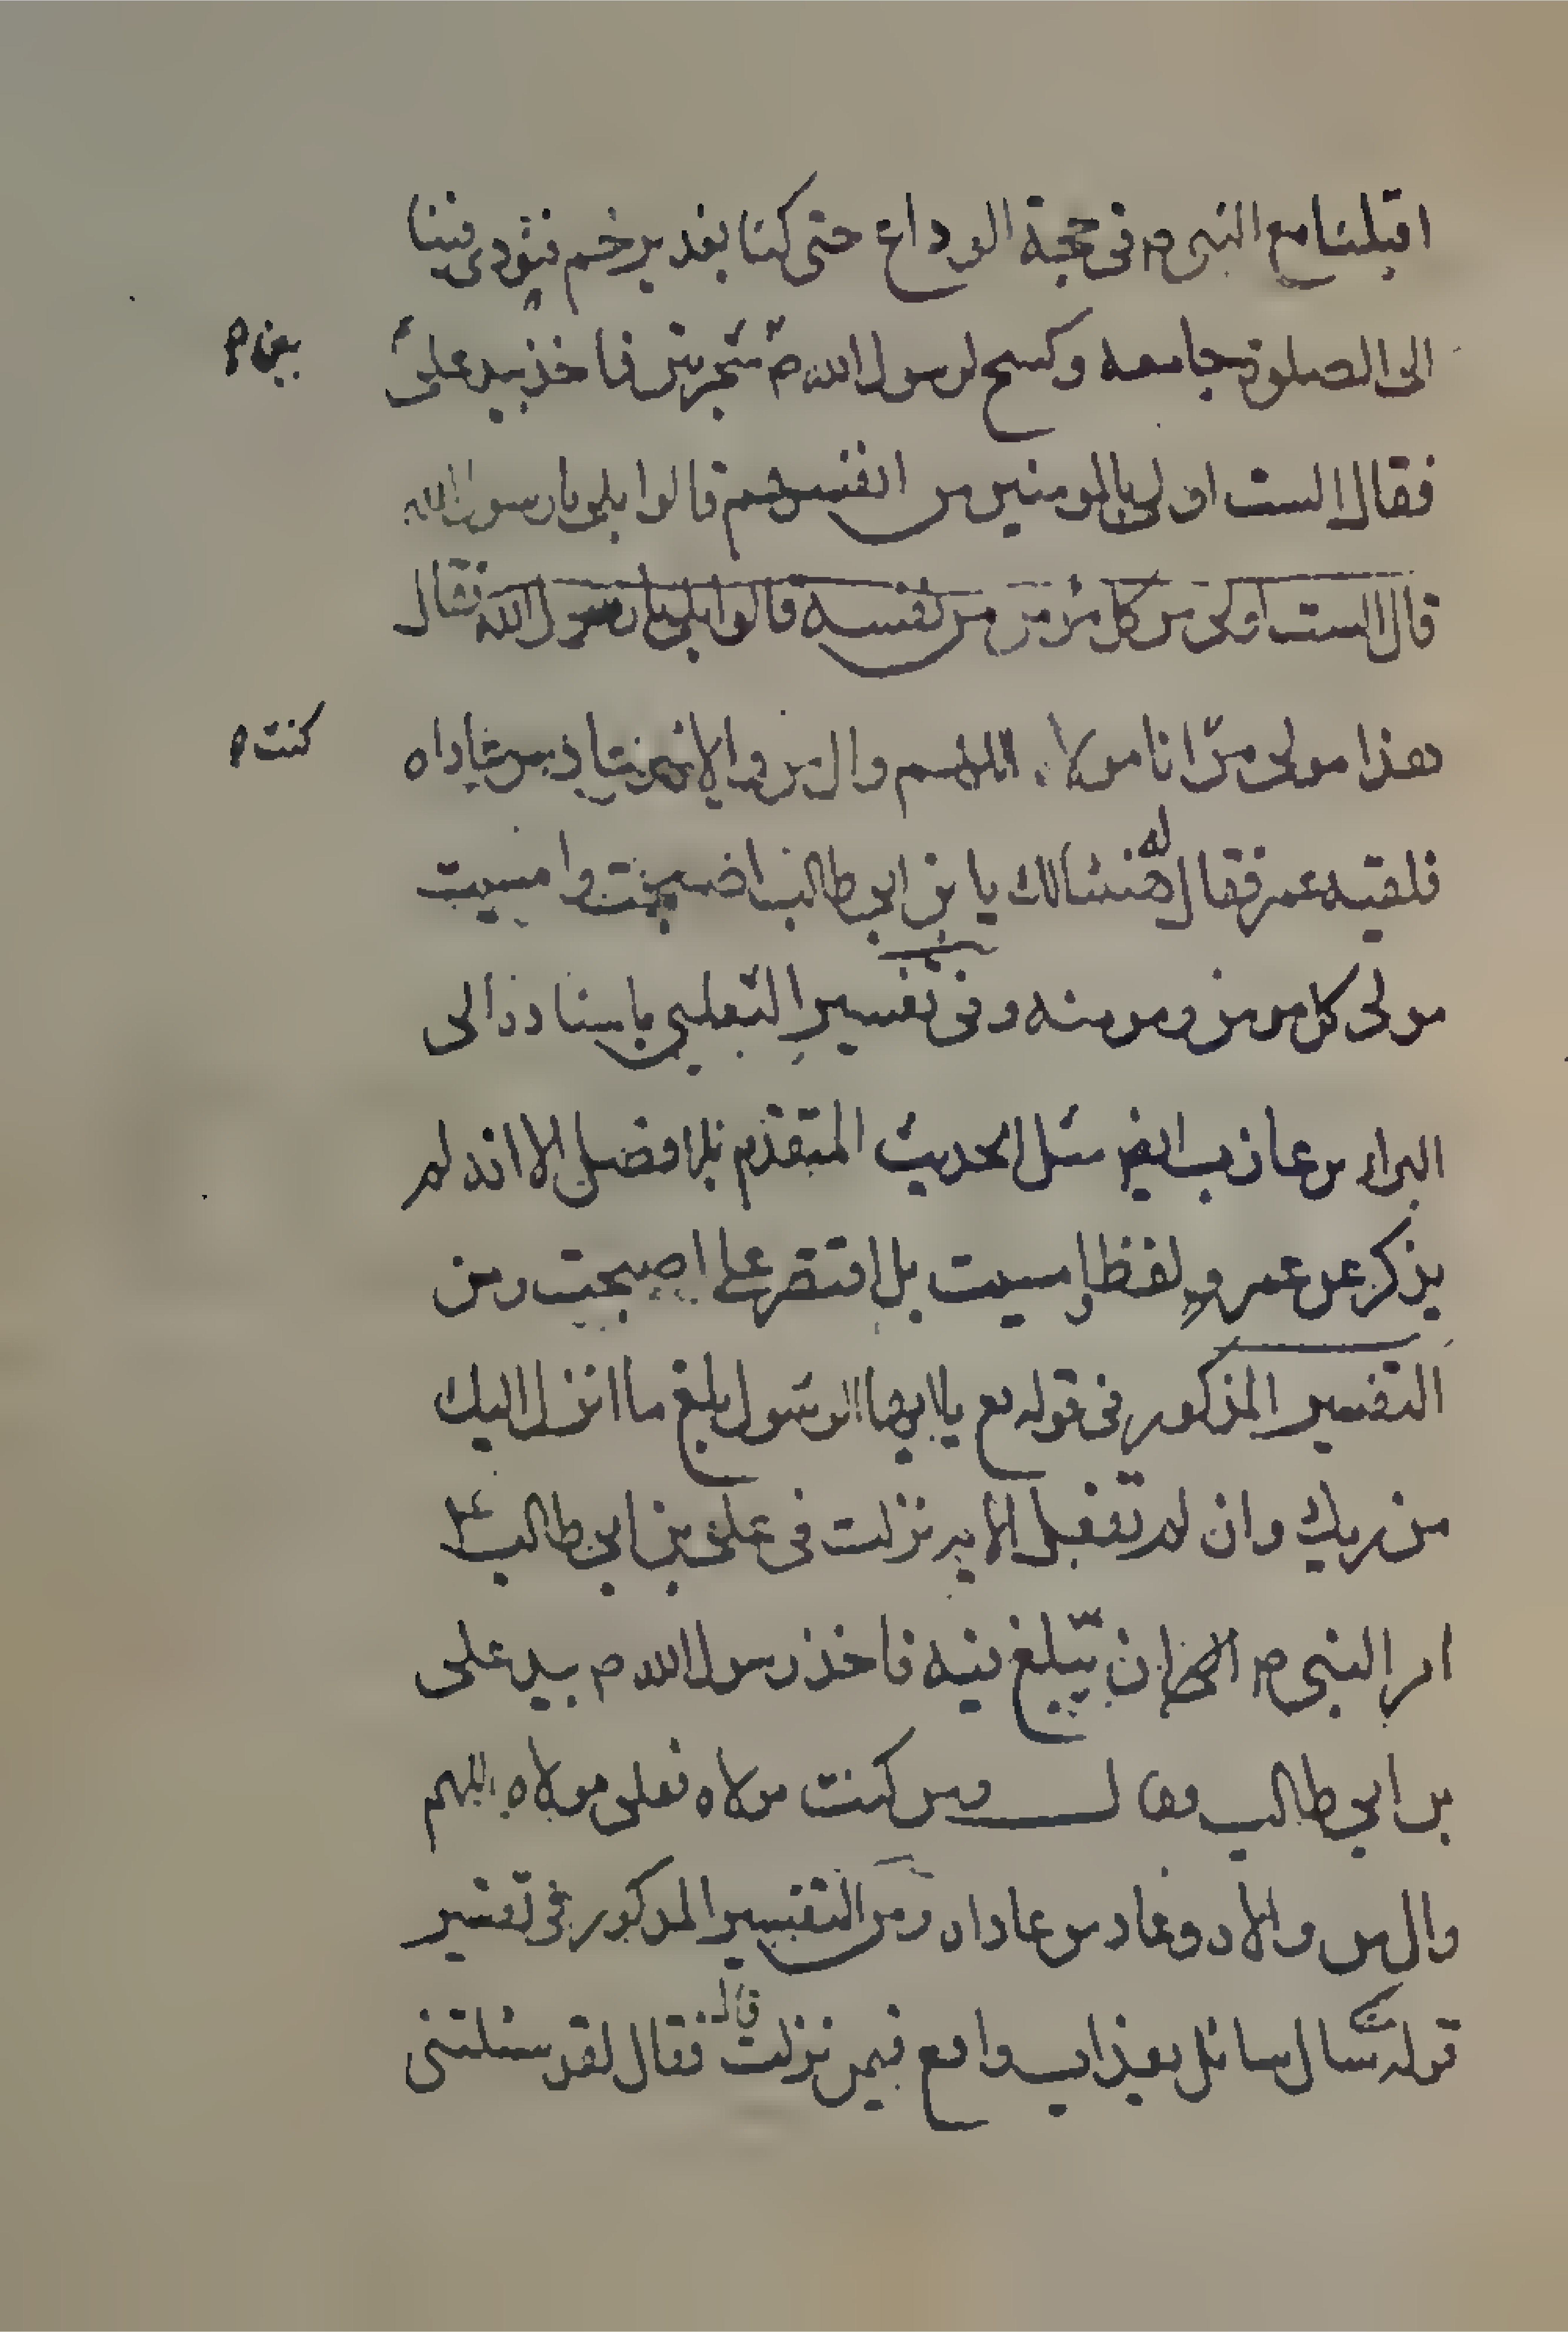 اقبلنا مع النبى ص فى حجة الوداع حتى كنا بغدير خم فنودى فينا
الى الصلوة جامعه وكسح لرسول الله ص شجرتين فاخذ بيد على
بين ص
فقال الست اولى بالمومنين من انفسهم قالوا بلى يا رسول الله
قال الست اولى من كل مومن من نفسه قالوا بلى يا رسول الله فقال
هذا مولى من انا مولاه اللهم وال من والاه وعاد من عاداه
كنت ص
فلقيه عمر فقال له هنئا لك يا بن ابى طالب اصبحت وامسيت
مولى كل مومن ومومنه وفى تفسير الثعلبى باسناده الى
البراء بن عازب ايضا مثل الحديث المتقدم بلا فضل الا انه لم
يذكر عن عمر ولفظ امسيت بل اقتصر على اصبحت ومن
التفسير المذكور فى قوله تع يا ايها الرسول بلغ ما انزل اليك
من ربك وان لم تفعل الايه نزلت فى على بن ابى طالب ع
امر النبى ص ان يبلغ فيه فاخذ رسول الله ص بيد على
بن ابى طالب وقال ومن كنت مولاه فعلى مولاه اللهم
وال من والاه وعاد من عاداه ومن التفسير المذكور فى تفسير
قوله سال سائل بعذاب واقع فيمن نزلت قال فقال لقد سئلتنى